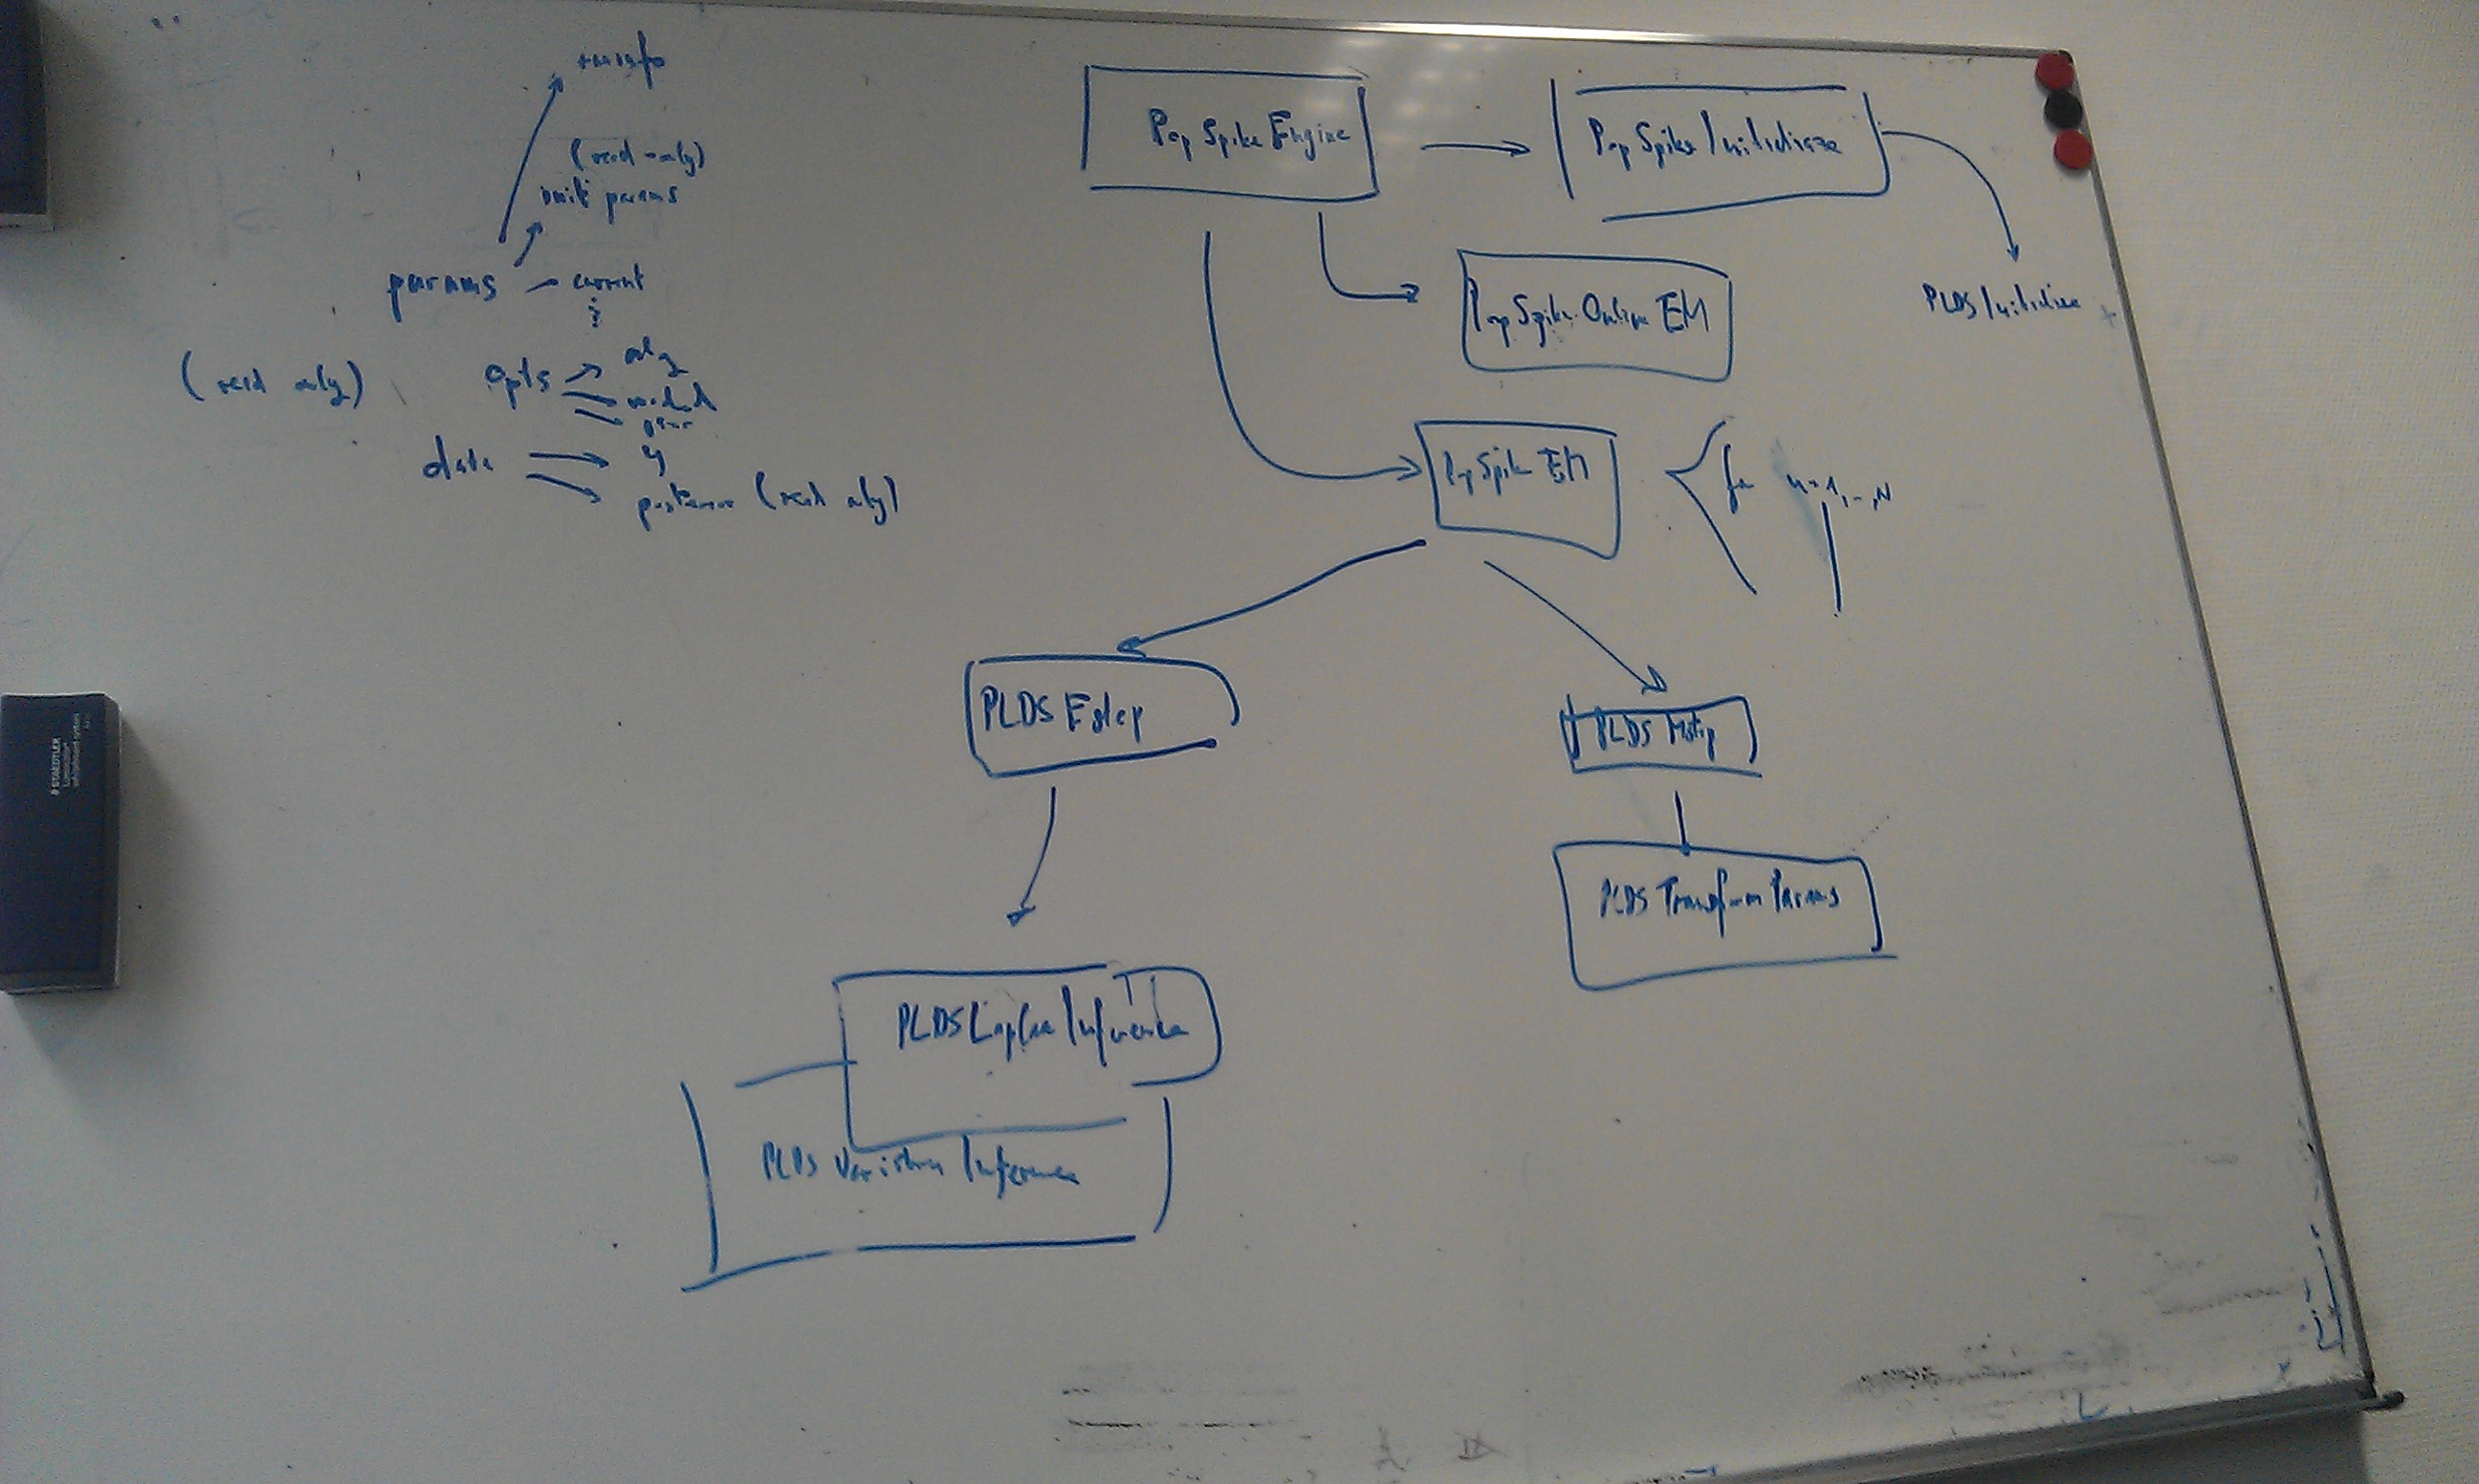 (read only)
init params
params
current
(read only)
opts
alg
model
data
y
posterior (read only)
PopSpikeEngine
PopSpikeInitialize
PLDSInitialize
PopSpikeOnlineEM
PopSpikeEM
for n=1,..,N
PLDS Estep
PLDS Mstep
PLDS TransformParams
PLDS Laplace Inference
PLDS Variation Inference
STAEDTLER
Lumocolor